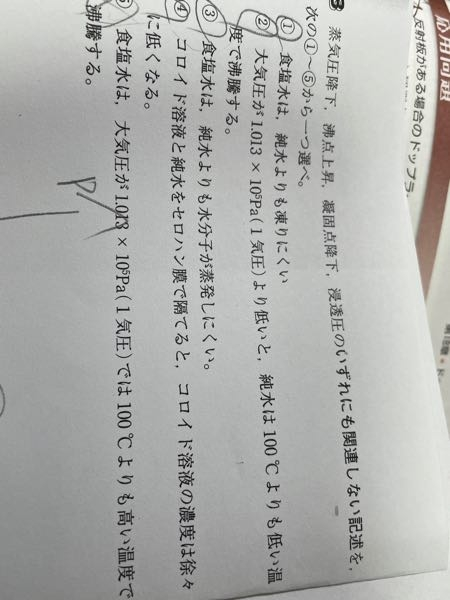 応用問題
反射板がある場合のドップラ
3 蒸気圧降下，沸点上昇，凝固点降下，浸透圧のいずれにも関連しない記述を，
次の①〜⑤から一つ選べ。
① 食塩水は，純水よりも凍りにくい
② 大気圧が1.013 × 10⁵Pa(1気圧)より低いと，純水は100℃よりも低い温
度で沸騰する。
③ 食塩水は，純水よりも水分子が蒸発しにくい。
④ コロイド溶液と純水をセロハン膜で隔てると，コロイド溶液の濃度は徐々
に低くなる。
⑤ 食塩水は，大気圧が1.013 × 10⁵Pa(1気圧)では100℃よりも高い温度で
沸騰する。